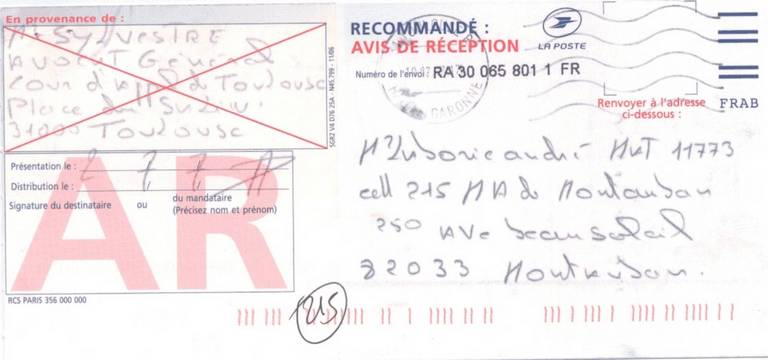 En provenance de :
M. SYLVESTRE
Avocat Général
Cour d'App de Toulouse
Place du
31000 Toulouse
SGR2 V4 D76 25A - N45.799 - 11/06
Présentation le : 2 7 7
Distribution le :
Signature du destinataire ou du mandataire
(Précisez nom et prénom)
AR
RCS PARIS 356 000 000
RECOMMANDÉ :
AVIS DE RÉCEPTION
LA POSTE
Numéro de l'envoi : RA 30 065 801 1 FR
GARONNE
Renvoyer à l'adresse
ci-dessous :
FRAB
André 11773
cell 215 MA de Montauban
250 AVe beausoleil
82033 Montauban.
215